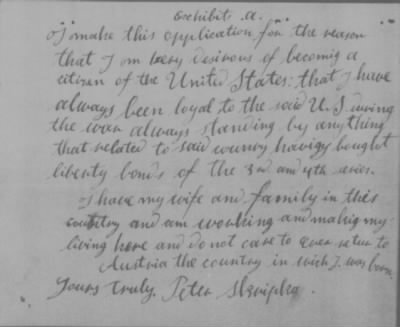 Exhibit .a.
I make this application for the reason
that I am very desirous of becomig a
citizen of the United States: that I have
always been loyal to the said U.S. during
the war always standing by anything
that related to said country havigg bought
liberty bonds of the 3rd and 4th series.
I have my wife and family in this
country and am working and makig my
living here and do not care to ever retur to
Austria the country in wich I was born.
Yours truly, Peter